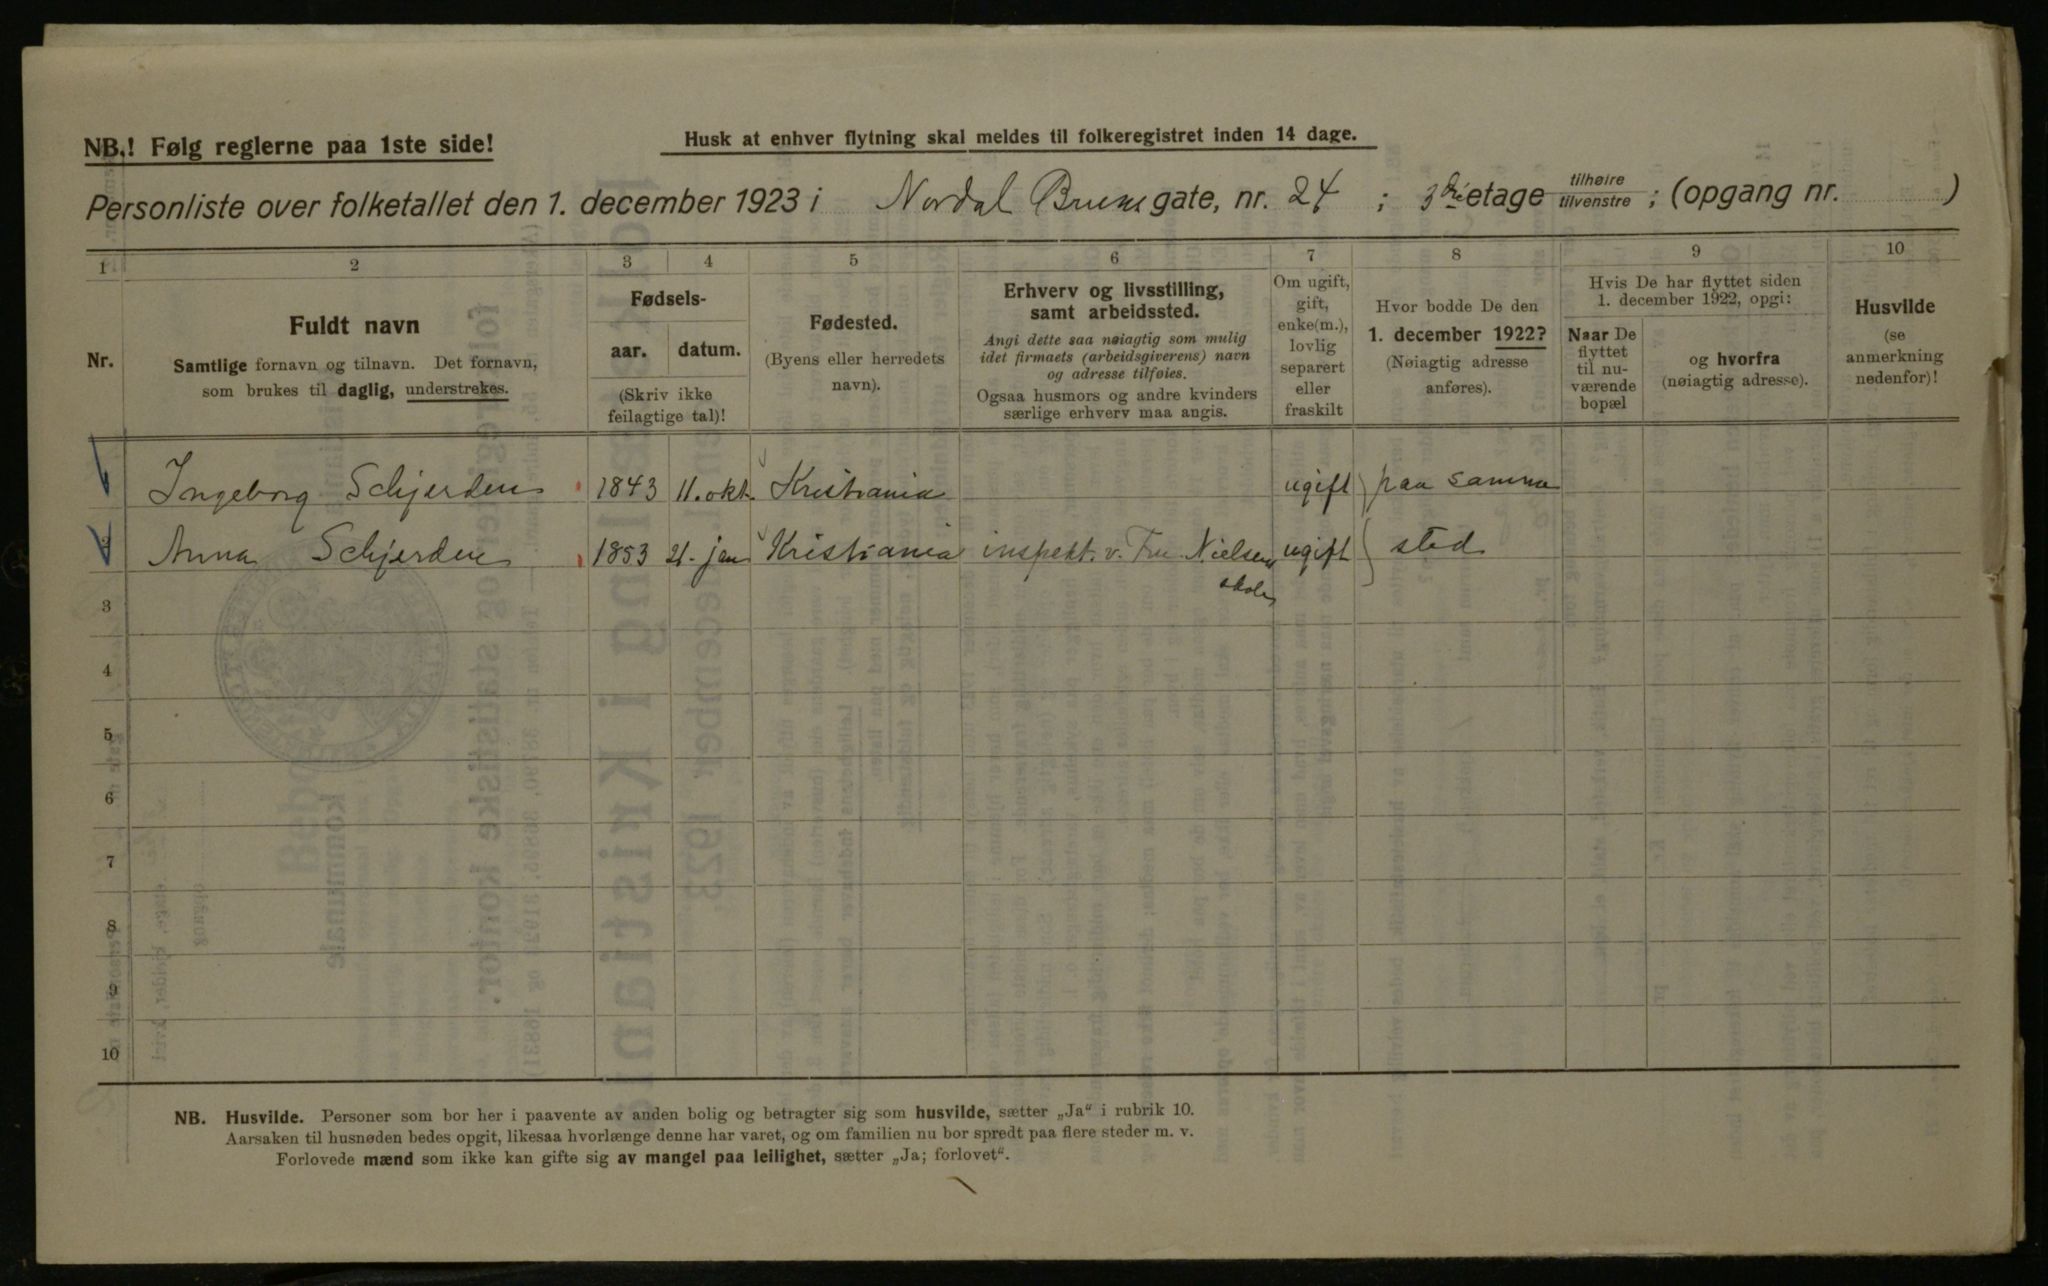 NB.! Følg reglerne paa 1ste side!
Husk at enhver flytning skal meldes til folkeregistret inden 14 dage.
Personliste over folketallet den 1. december 1923 i Nordal Brunsgate, nr. 24 ; 3die etage tilhøire tilvenstre ; (opgang nr. )
1 2 3 4 5 6 7 8 9 10
Nr.
Fuldt navn
Samtlige fornavn og tilnavn. Det fornavn,
som brukes til daglig, understrekes.
Fødsels-
aar. datum.
(Skriv ikke
feilagtige tal)!
Fødested.
(Byens eller herredets
navn).
Erhverv og livsstilling,
samt arbeidssted.
Angi dette saa nøiagtig som mulig
idet firmaets (arbeidsgiverens) navn
og adresse tilføies.
Ogsaa husmors og andre kvinders
særlige erhverv maa angis.
Om ugift,
gift,
enke(m.),
lovlig
separert
eller
fraskilt
Hvor bodde De den
1. december 1922?
(Nøiagtig adresse
anføres).
Hvis De har flyttet siden
1. december 1922, opgi:
Naar De
flyttet
til nu-
værende
bopæl
og hvorfra
(nøiagtig adresse).
Husvilde
(se
anmerkning
nedenfor)!
Ingeborg Schjerden 1843 11. okt. Kristiania ugift paa samme
2 Anna Schjerden 1853 21. jan Kristiania inspekt. v. Fru Nielsens ugift sted
skole
3
4
5
6
7
8
9
10
NB. Husvilde. Personer som bor her i paavente av anden bolig og betragter sig som husvilde, sætter „Ja“ i rubrik 10.
Aarsaken til husnøden bedes opgit, likesaa hvorlænge denne har varet, og om familien nu bor spredt paa flere steder m. v.
Forlovede mænd som ikke kan gifte sig av mangel paa leilighet, sætter „Ja; forlovet“.